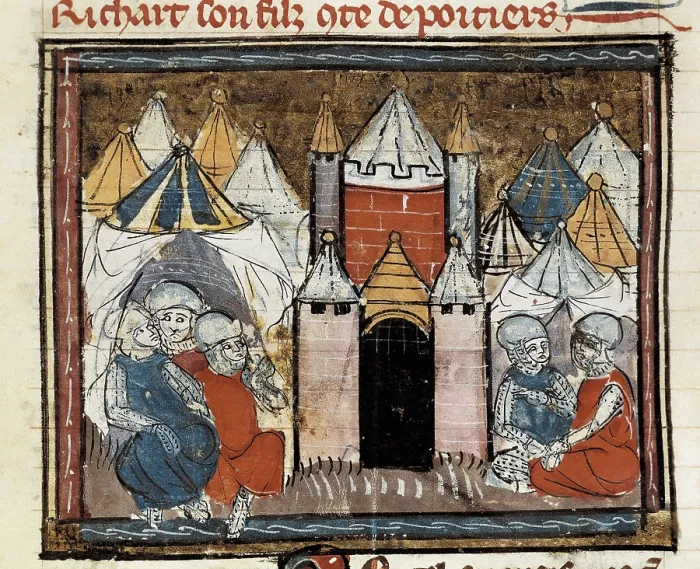 Richart son filz ꝯte de poitiers.